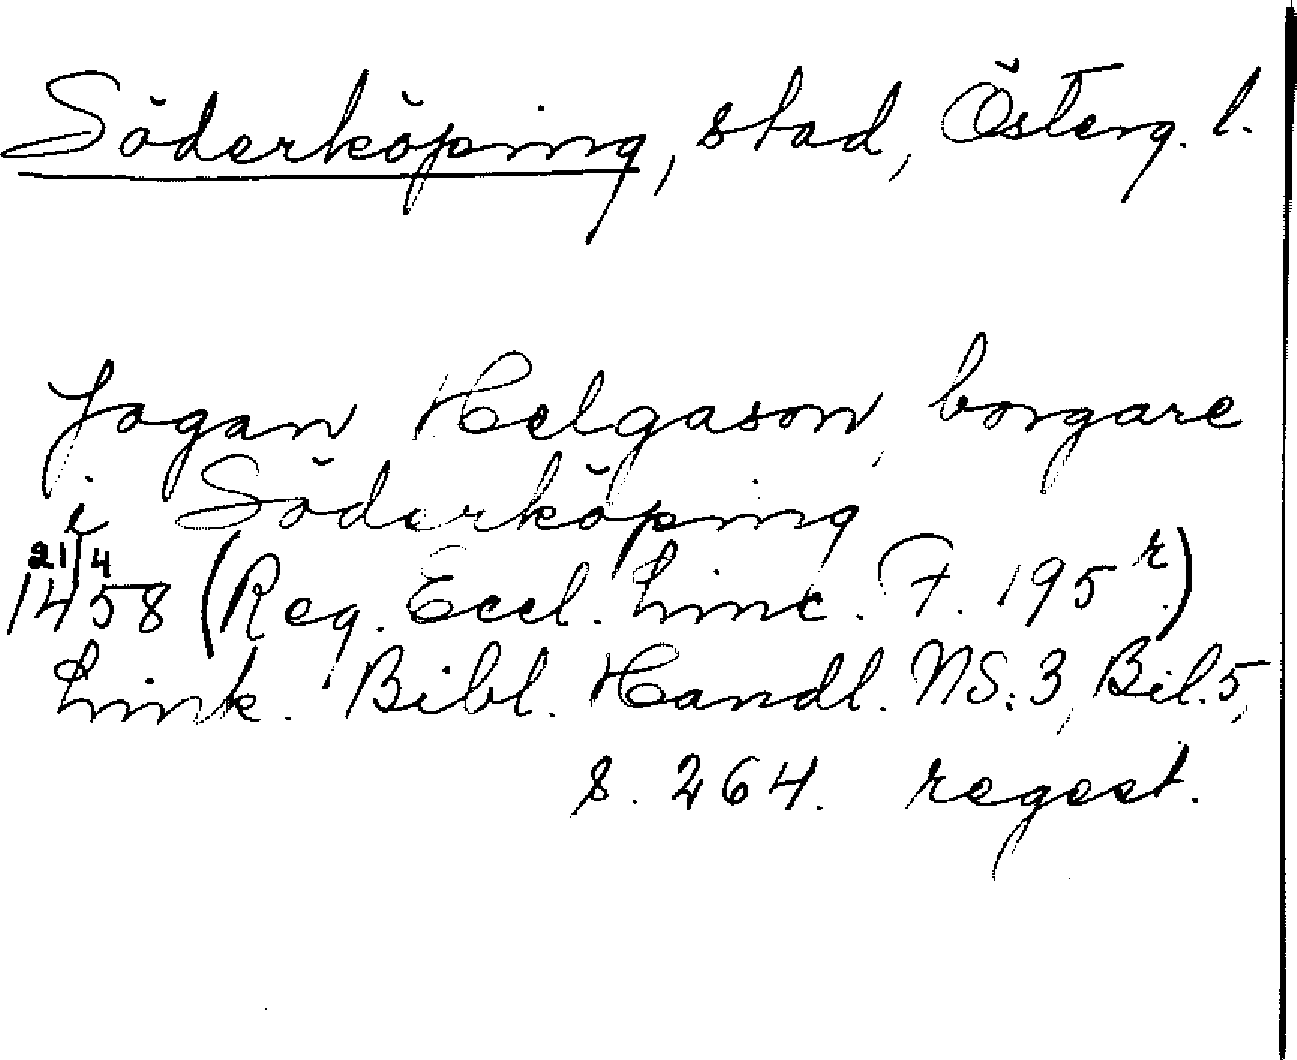 Söderköping, stad, Österg. l.
Jogan Helgason, borgare
i Söderköping
21/4 1458 (Reg. Eccl. Linc. F. 195 r.)
Link. Bibl. Handl. NS: 3, Bil. 5,
s. 264. regest.